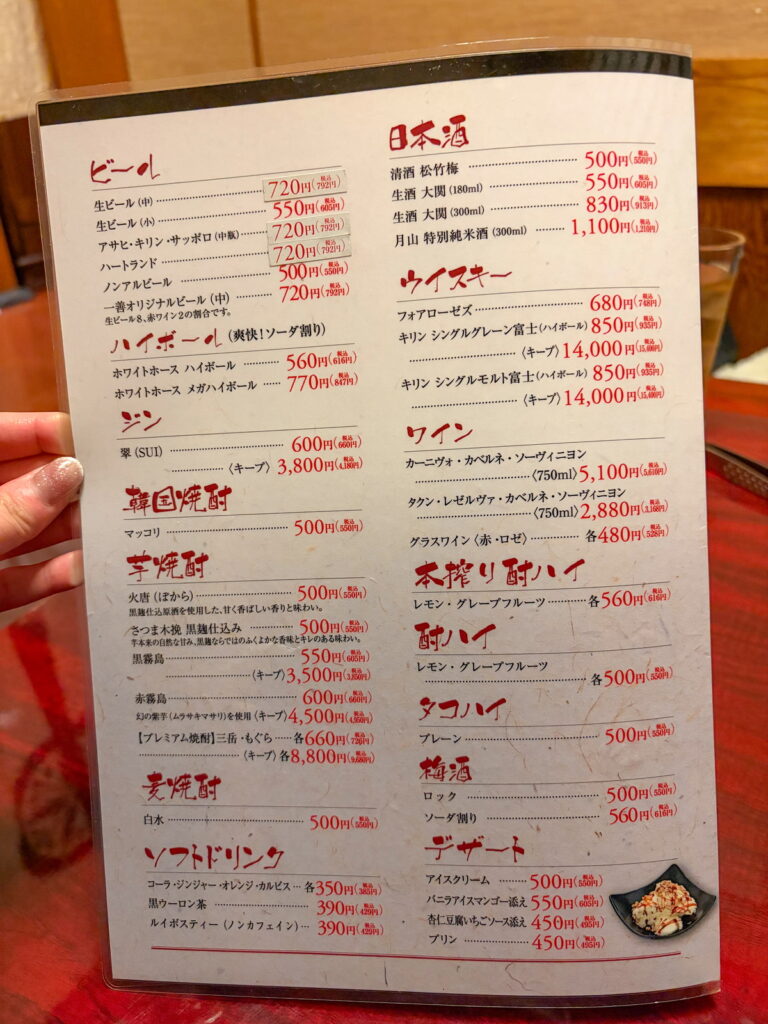 ビール
生ビール（中） 720円(税込792円)
生ビール（小） 550円(税込605円)
アサヒ・キリン・サッポロ（中瓶） 720円(税込792円)
ハートランド 720円(税込792円)
ノンアルビール 500円(税込550円)
一善オリジナルビール（中） 720円(税込792円)
生ビール8、赤ワイン2の割合です。
ハイボール（爽快！ソーダ割り）
ホワイトホース ハイボール 560円(税込616円)
ホワイトホース メガハイボール 770円(税込847円)
ジン
翠（SUI） 600円(税込660円)
〈キープ〉 3,800円(税込4,180円)
韓国焼酎
マッコリ 500円(税込550円)
芋焼酎
火唐（ぽから） 500円(税込550円)
黒麹仕込原酒を使用した、甘く香ばしい香りと味わい。
さつま木挽 黒麹仕込み 500円(税込550円)
芋本来の自然な甘み、黒麹ならではのふくよかな香味とキレのある味わい。
黒霧島 550円(税込605円)
〈キープ〉 3,500円(税込3,850円)
赤霧島 600円(税込660円)
幻の紫芋（ムラサキマサリ）を使用〈キープ〉 4,500円(税込4,950円)
【プレミアム焼酎】三岳・もぐら 各660円(税込726円)
〈キープ〉各8,800円(税込9,680円)
麦焼酎
白水 500円(税込550円)
ソフトドリンク
コーラ・ジンジャー・オレンジ・カルピス 各350円(税込385円)
黒ウーロン茶 390円(税込429円)
ルイボスティー（ノンカフェイン） 390円(税込429円)
日本酒
清酒 松竹梅 500円(税込550円)
生酒 大関（180ml） 550円(税込605円)
生酒 大関（300ml） 830円(税込913円)
月山 特別純米酒（300ml） 1,100円(税込1,210円)
ウイスキー
フォアローゼズ 680円(税込748円)
キリン シングルグレーン富士（ハイボール） 850円(税込935円)
〈キープ〉 14,000円(税込15,400円)
キリン シングルモルト富士（ハイボール） 850円(税込935円)
〈キープ〉 14,000円(税込15,400円)
ワイン
カーニヴォ・カベルネ・ソーヴィニヨン
〈750ml〉 5,100円(税込5,610円)
タクン・レゼルヴァ・カベルネ・ソーヴィニヨン
〈750ml〉 2,880円(税込3,168円)
グラスワイン〈赤・ロゼ〉 各480円(税込528円)
本搾り酎ハイ
レモン・グレープフルーツ 各560円(税込616円)
酎ハイ
レモン・グレープフルーツ
各500円(税込550円)
タコハイ
プレーン 500円(税込550円)
梅酒
ロック 500円(税込550円)
ソーダ割り 560円(税込616円)
デザート
アイスクリーム 500円(税込550円)
バニラアイスマンゴー添え 550円(税込605円)
杏仁豆腐いちごソース添え 450円(税込495円)
プリン 450円(税込495円)